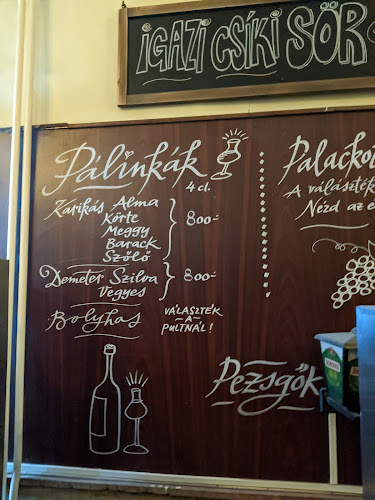 IGAZI CSÍKI SÖR
Pálinkák
4 cl.
Karikás Alma
Körte
Meggy
Barack
Szőlő
800.-
Demeter Szilva
Vegyes
800.-
Bolyhas
VÁLASZTÉK
A
PULTNÁL!
A választék
Nézd az
Pezsgők